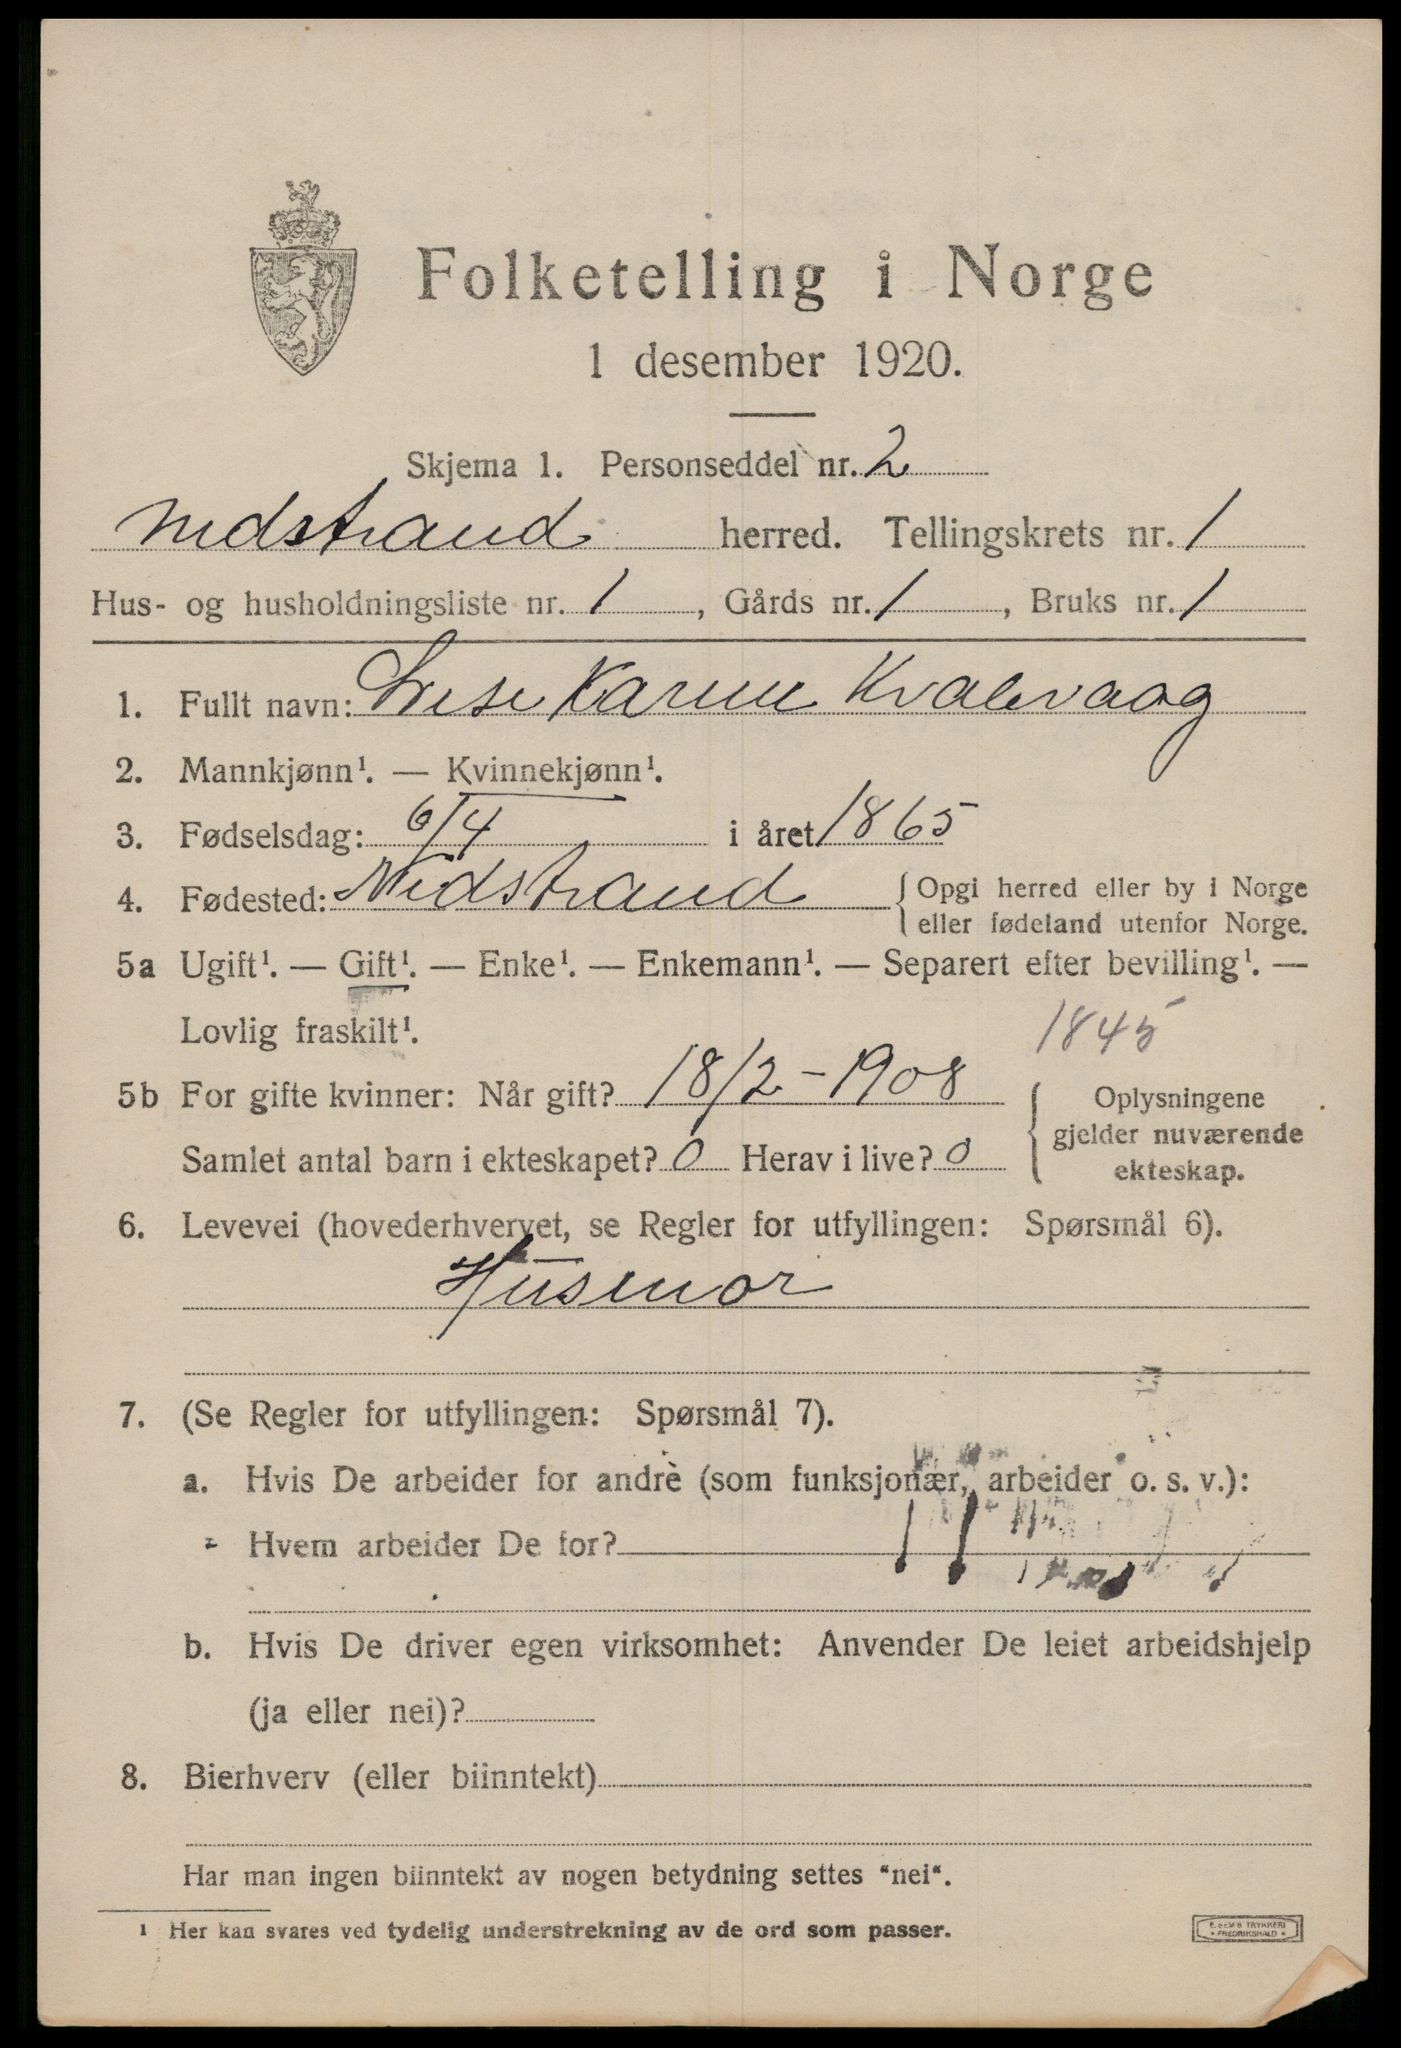 Folketelling i Norge
1 desember 1920.
Skjema 1. Personseddel nr. 2
Nedstrand herred. Tellingskrets nr. 1
Hus- og husholdningsliste nr. 1, Gårds nr. 1, Bruks nr. 1
1. Fullt navn: Karine Kvalevaag
2. Mannkjønn¹. — Kvinnekjønn¹.
3. Fødselsdag: 6/4 i året 1865
4. Fødested: Nedstrand { Opgi herred eller by i Norge
eller fødeland utenfor Norge.
5a Ugift¹. — Gift¹. — Enke¹. — Enkemann¹. — Separert efter bevilling¹. —
Lovlig fraskilt¹.
1845
5b For gifte kvinner: Når gift? 18/2-1908
Samlet antal barn i ekteskapet? 0 Herav i live? 0
{ Oplysningene
gjelder nuværende
ekteskap.
6. Levevei (hovederhvervet, se Regler for utfyllingen: Spørsmål 6).
Husmor
7. (Se Regler for utfyllingen: Spørsmål 7).
a. Hvis De arbeider for andre (som funksjonær, arbeider o. s. v.):
Hvem arbeider De for?
b. Hvis De driver egen virksomhet: Anvender De leiet arbeidshjelp
(ja eller nei)?
8. Bierhverv (eller biinntekt)
Har man ingen biinntekt av nogen betydning settes "nei".
¹ Her kan svares ved tydelig understrekning av de ord som passer.
TRYKKERI
FREDRIKSHALD